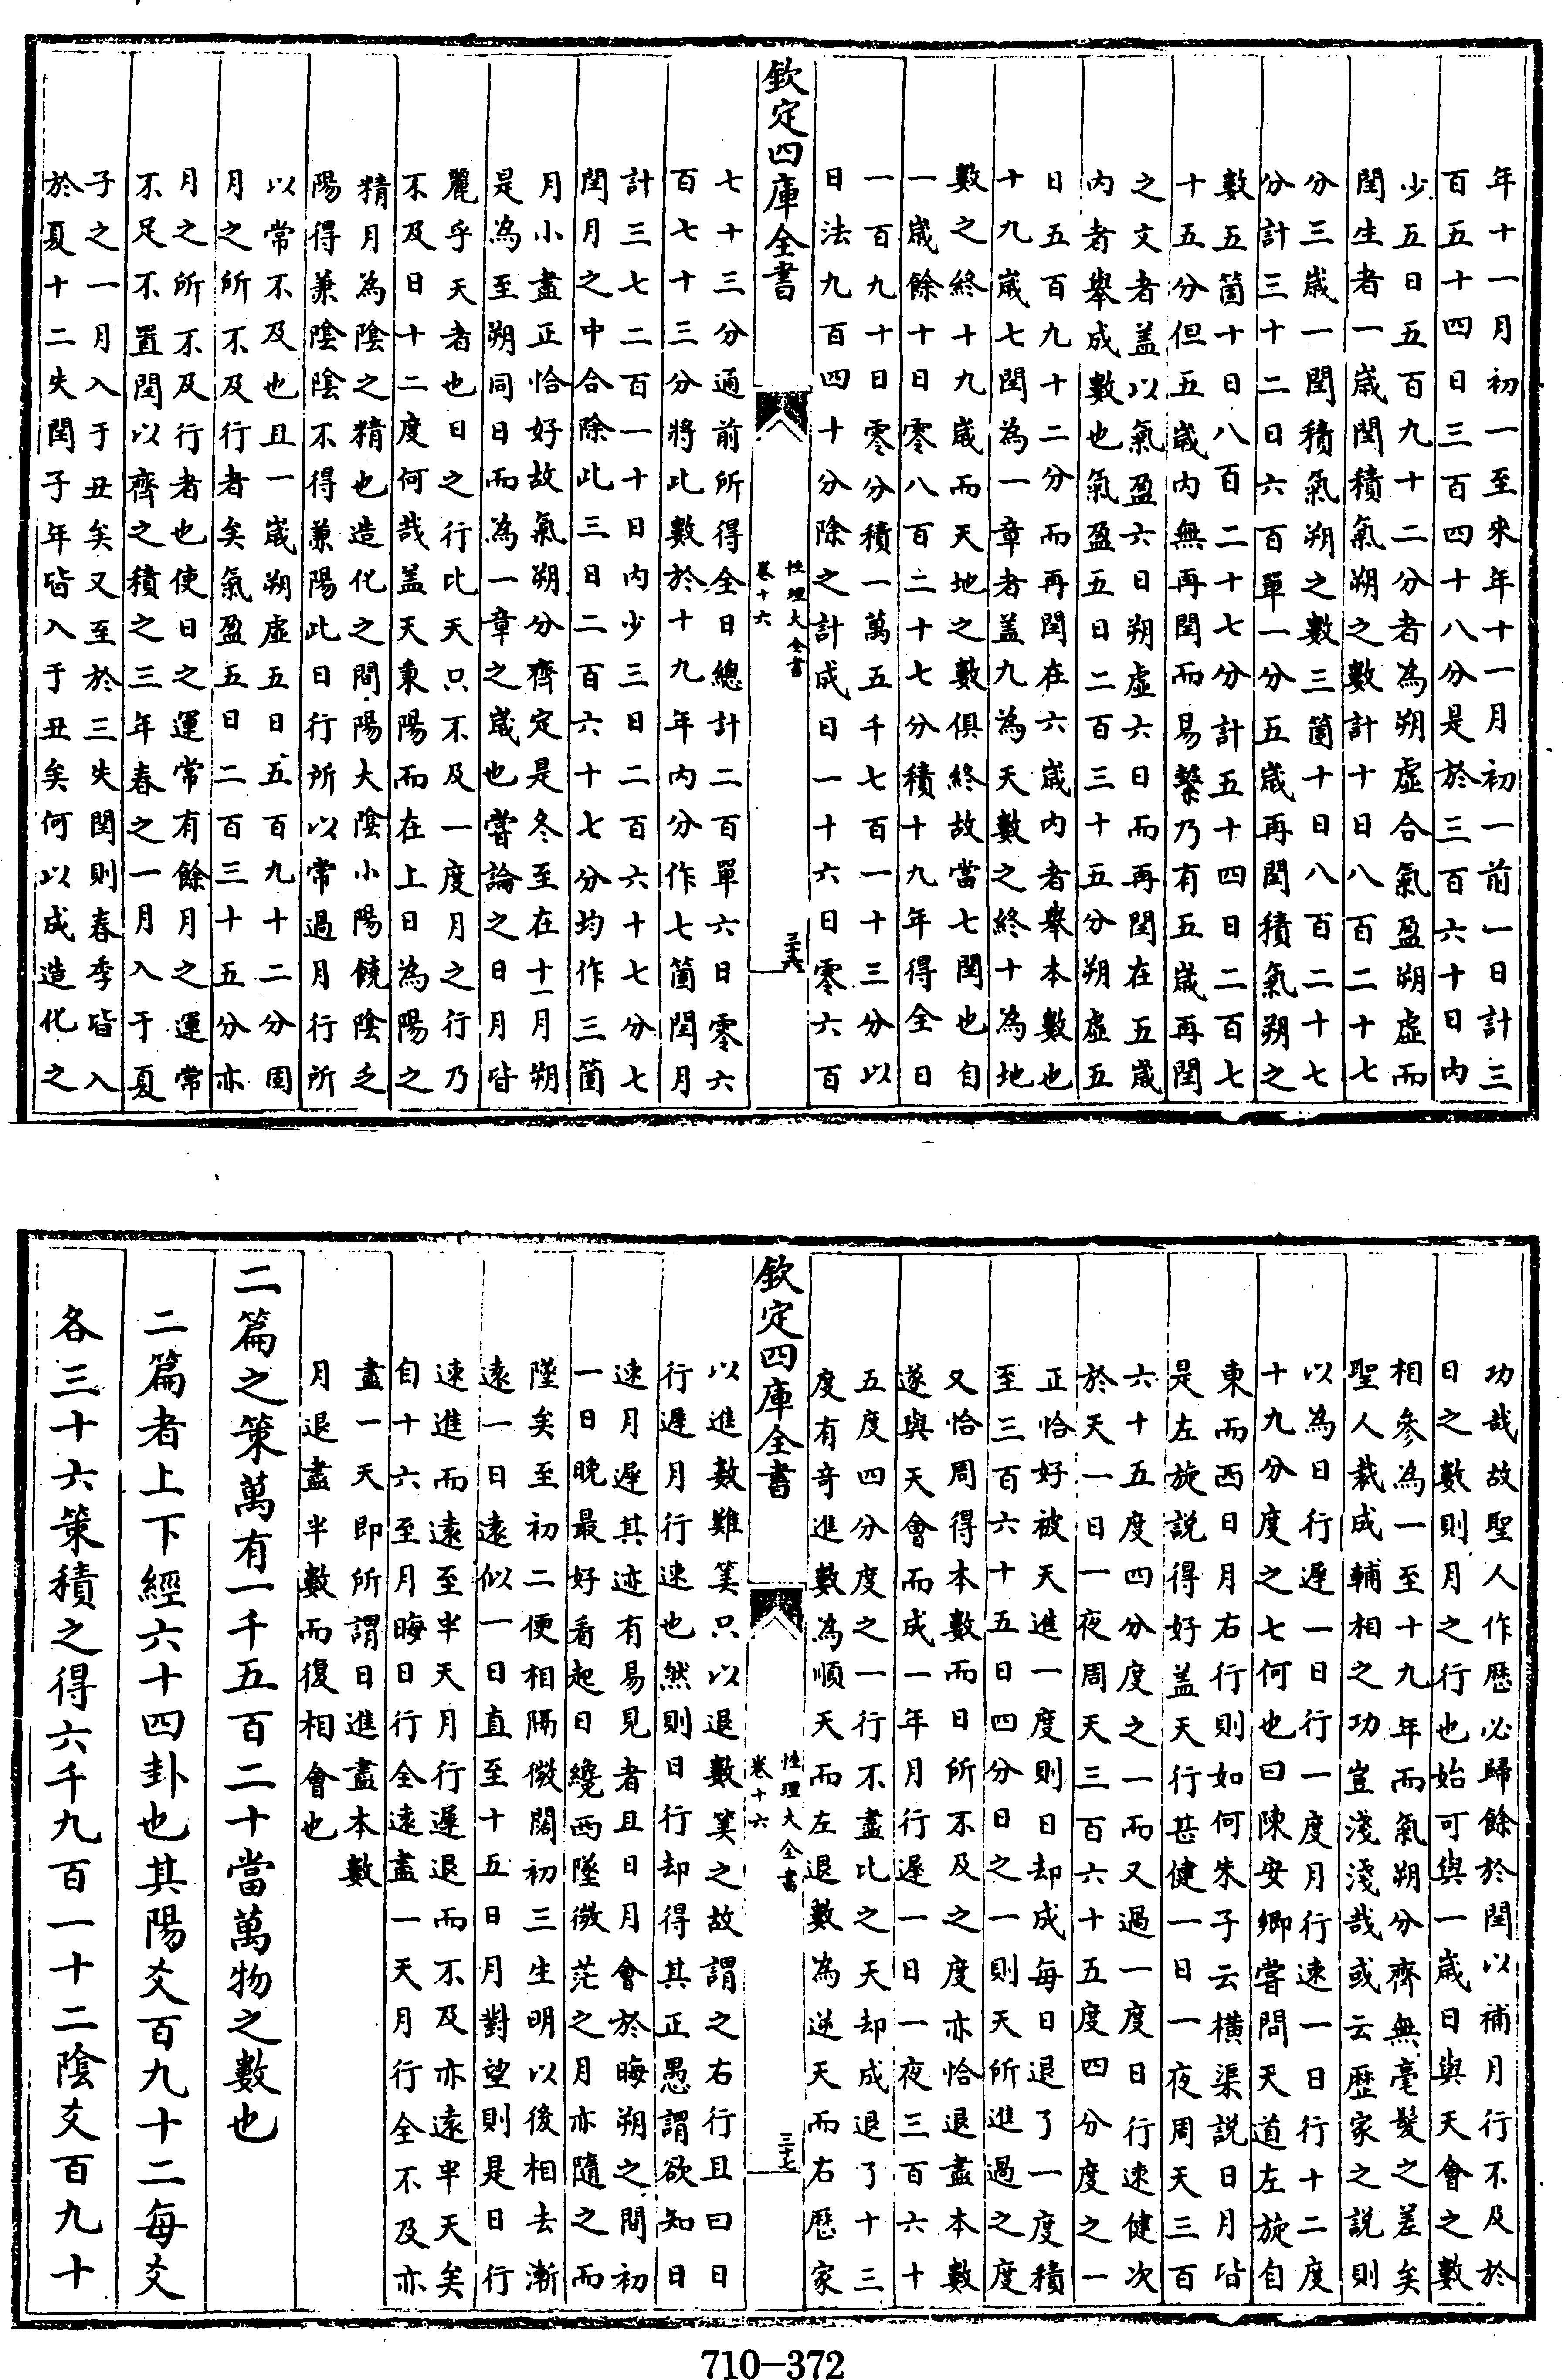 年十一月初一至來年十一月初一前一日計三
百五十四日三百四十八分是於三百六十日內
少五日五百九十二分者為朔虛合氣盈朔虛而
閏生者一歲閏積氣朔之數計十日八百二十七
分三歲一閏積氣朔之數三箇十日八百二十七
分計三十二日六百單一分五歲再閏積氣朔之
數五箇十日八百二十七分計五十四日二百七
十五分但五歲內無再閏而易繫乃有五歲再閏
之文者盖以氣盈六日朔虛六日而再閏在五歲
內者舉成數也氣盈五日二百三十五分朔虛五
日五百九十二分而再閏在六歲內者舉本數也
十九歲七閏為一章者盖九為天數之終十為地
數之終十九歲而天地之數俱終故當七閏也自
一歲餘十日零八百二十七分積十九年得全日
一百九十日零分積一萬五千七百一十三分以
日法九百四十分除之計成日一十六日零六百
欽定四庫全書
性理大全書
卷十六
三十六
七十三分通前所得全日總計二百單六日零六
百七十三分將此數於十九年內分作七箇閏月
計三七二百一十日內少三日二百六十七分七
閏月之中合除此三日二百六十七分均作三箇
月小盡正恰好故氣朔分齊定是冬至在十一月朔
是為至朔同日而為一章之歲也嘗論之日月皆
麗乎天者也日之行比天只不及一度月之行乃
不及日十二度何哉盖天秉陽而在上日為陽之
精月為陰之精也造化之間陽大陰小陽饒陰乏
陽得兼陰陰不得兼陽此日行所以常過月行所
以常不及也且一歲朔虛五日五百九十二分固
月之所不及行者矣氣盈五日二百三十五分亦
月之所不及行者也使日之運常有餘月之運常
不足不置閏以齊之積之三年春之一月入于夏
子之一月入于丑矣又至於三失閏則春季皆入
於夏十二失閏子年皆入于丑矣何以成造化之
功哉故聖人作歷必歸餘於閏以補月行不及於
日之數則月之行也始可與一歲日與天會之數
相參為一至十九年而氣朔分齊無毫髮之差矣
聖人裁成輔相之功豈淺淺哉或云歷家之說則
以為日行遲一日行一度月行速一日行十二度
十九分度之七何也曰陳安卿嘗問天道左旋自
東而西日月右行則如何朱子云橫渠說日月皆
是左旋說得好盖天行甚健一日一夜周天三百
六十五度四分度之一而又過一度日行速健次
於天一日一夜周天三百六十五度四分度之一
正恰好被天進一度則日却成每日退了一度積
至三百六十五日四分日之一則天所進過之度
又恰周得本數而日所不及之度亦恰退盡本數
遂與天會而成一年月行遲一日一夜三百六十
五度四分度之一行不盡比之天却成退了十三
度有奇進數為順天而左退數為逆天而右歷家
欽定四庫全書
性理大全書
卷十六
三十七
以進數難筭只以退數筭之故謂之右行且曰日
行遲月行速也然則日行却得其正愚謂欲知日
速月遲其迹有易見者且日月會於晦朔之間初
一日晚最好看起日纔西墜微茫之月亦隨之而
墜矣至初二便相隔微闊初三生明以後相去漸
遠一日遠似一日直至十五日月對望則是日行
速進而遠至半天月行遲退而不及亦遠半天矣
自十六至月晦日行全遠盡一天月行全不及亦
盡一天即所謂日進盡本數
月退盡半數而復相會也
二篇之策萬有一千五百二十當萬物之數也
二篇者上下經六十四卦也其陽爻百九十二每爻
各三十六策積之得六千九百一十二陰爻百九十
710-372